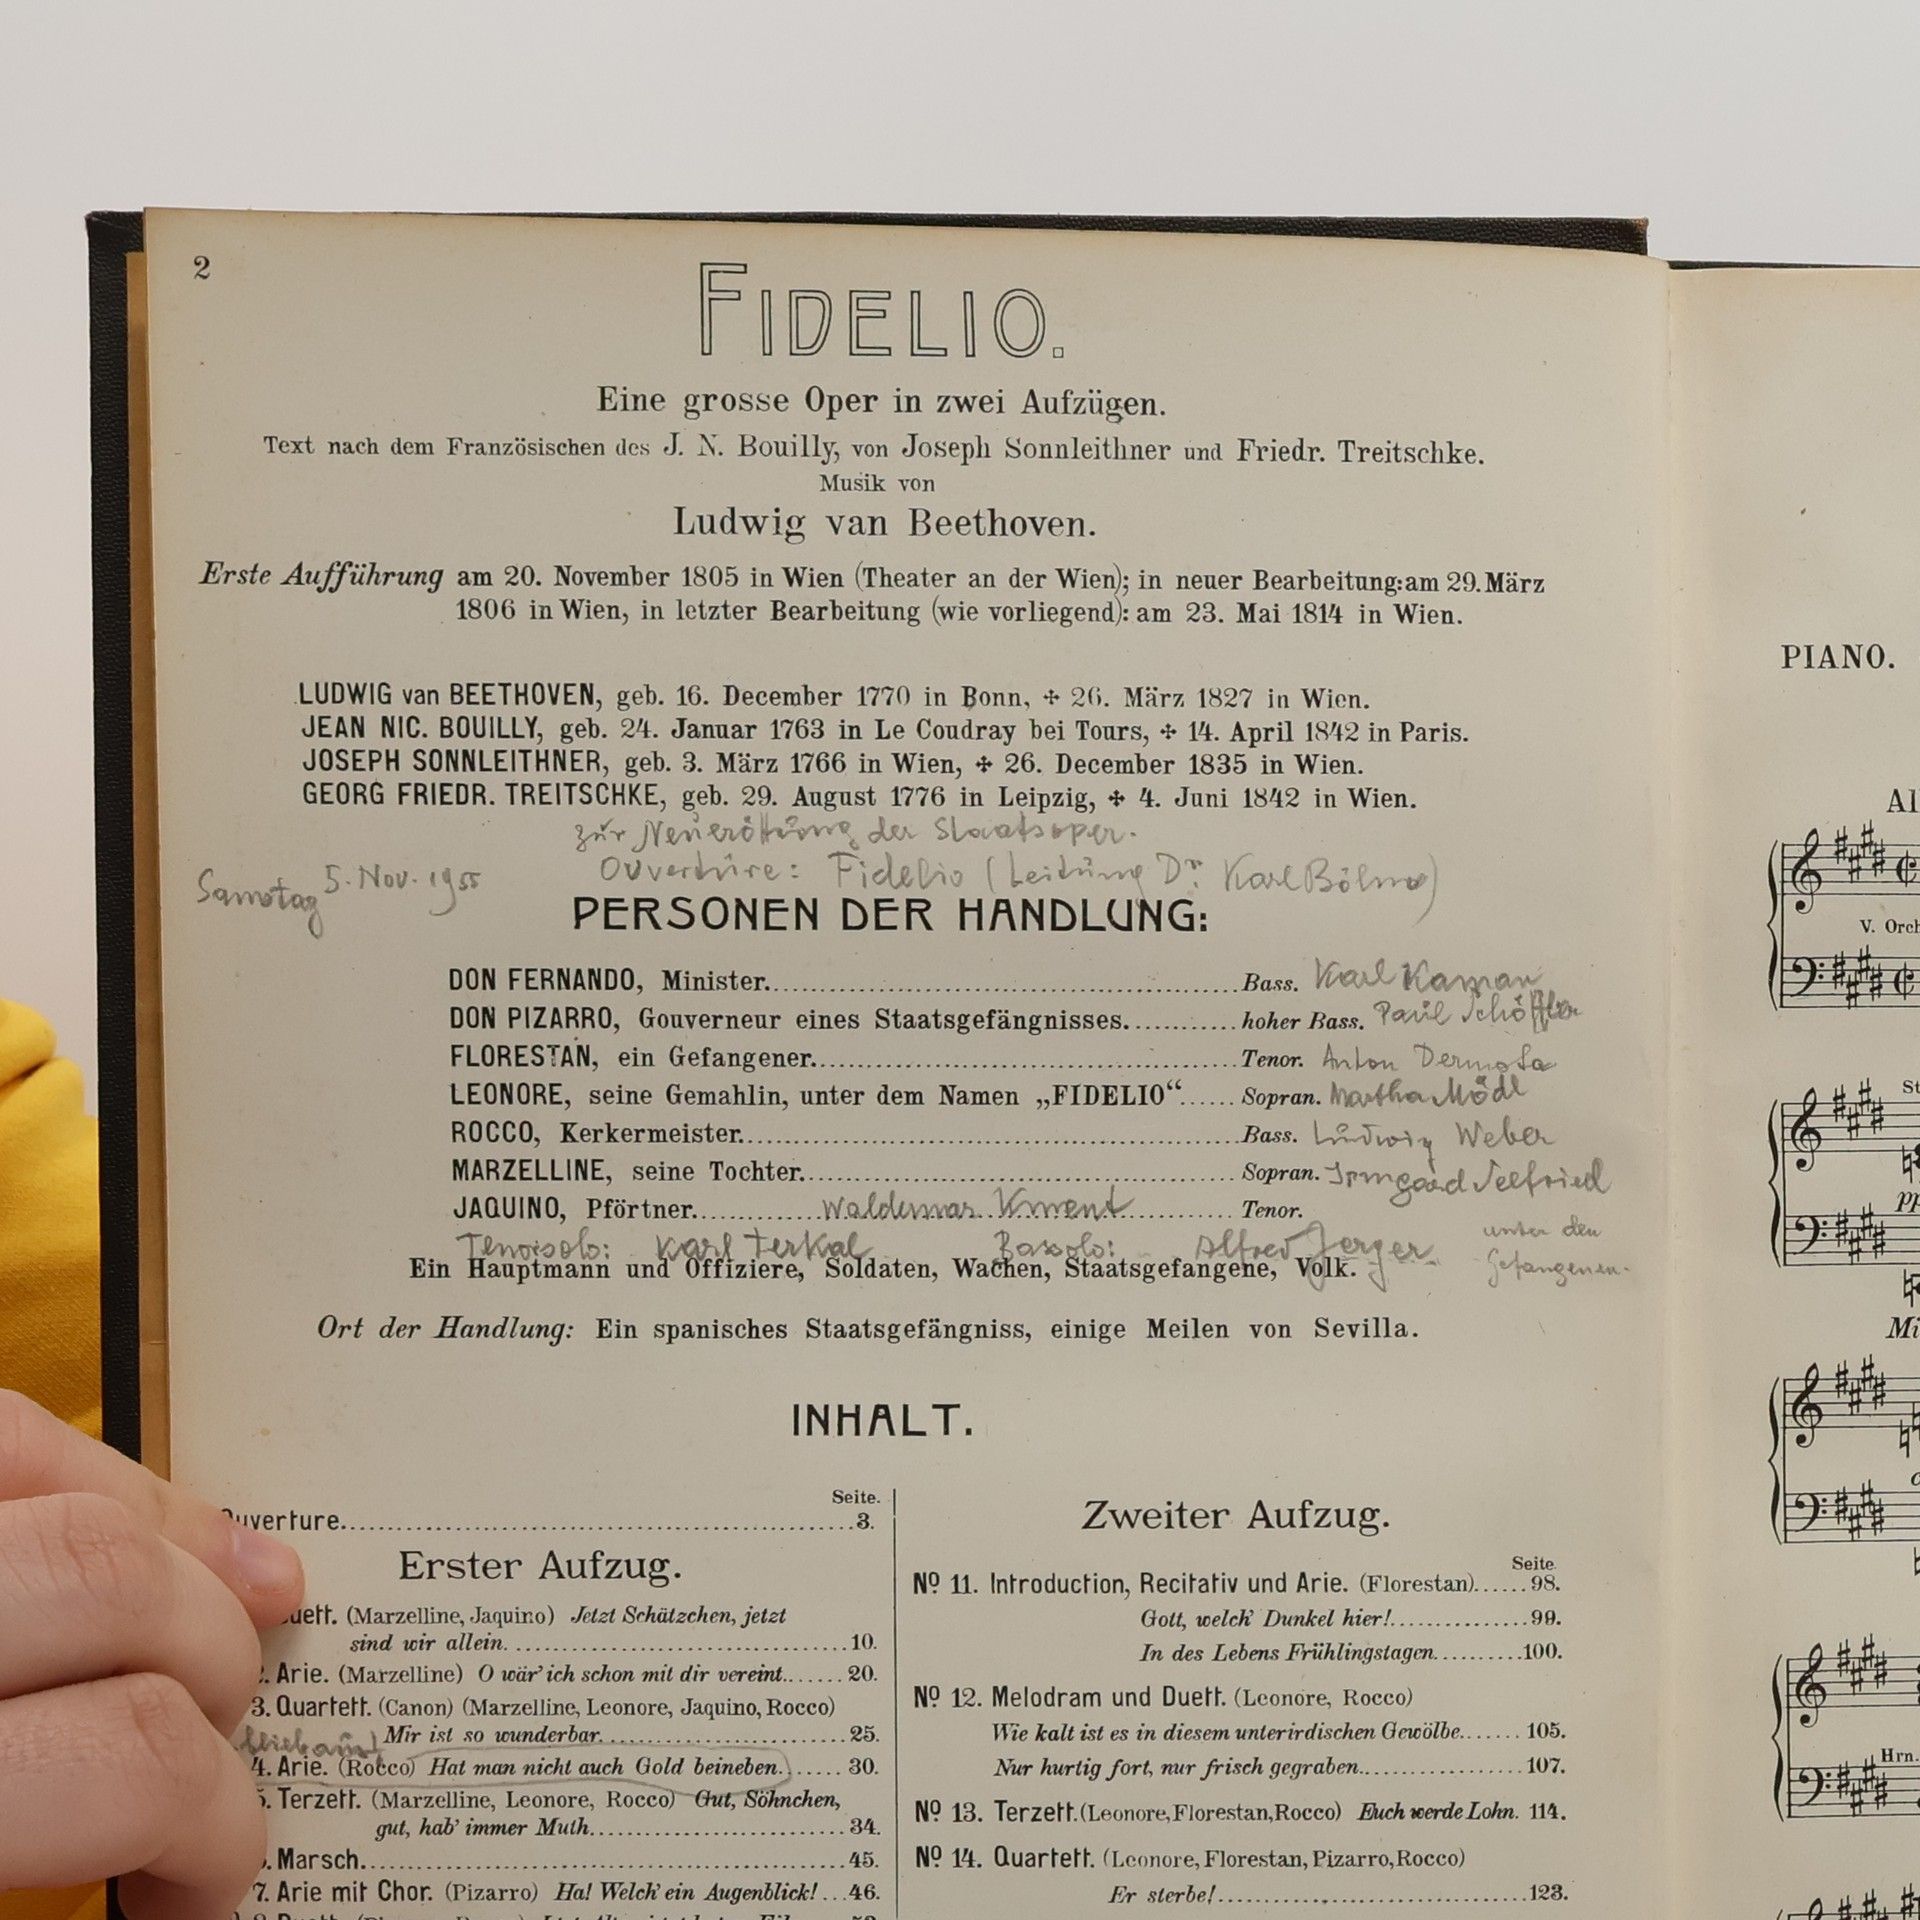 2
FIDELIO.
Eine grosse Oper in zwei Aufzügen.
Text nach dem Französischen des J. N. Bouilly, von Joseph Sonnleithner und Friedr. Treitschke.
Musik von
Ludwig van Beethoven.
Erste Aufführung am 20. November 1805 in Wien (Theater an der Wien); in neuer Bearbeitung: am 29. März
1806 in Wien, in letzter Bearbeitung (wie vorliegend): am 23. Mai 1814 in Wien.
LUDWIG van BEETHOVEN, geb. 16. December 1770 in Bonn, ✣ 26. März 1827 in Wien.
JEAN NIC. BOUILLY, geb. 24. Januar 1763 in Le Coudray bei Tours, ✣ 14. April 1842 in Paris.
JOSEPH SONNLEITHNER, geb. 3. März 1766 in Wien, ✣ 26. December 1835 in Wien.
GEORG FRIEDR. TREITSCHKE, geb. 29. August 1776 in Leipzig, ✣ 4. Juni 1842 in Wien.
zur Neueröffnung der Staatsoper.
Samstag 5. Nov. 1955 Ouvertüre: Fidelio (Leitung Dr. Karl Böhm)
PERSONEN DER HANDLUNG:
DON FERNANDO, Minister. Bass. Karl Kaman
DON PIZARRO, Gouverneur eines Staatsgefängnisses. hoher Bass. Paul Schöffler
FLORESTAN, ein Gefangener. Tenor. Anton Dermota
LEONORE, seine Gemahlin, unter dem Namen „FIDELIO“ Sopran. Martha Mödl
ROCCO, Kerkermeister. Bass. Ludwig Weber
MARZELLINE, seine Tochter. Sopran. Irmgard Seefried
JAQUINO, Pförtner. Waldemar Kment Tenor.
Tenorsolo: Karl Terkal Bassolo: Alfred Jerger unter den Gefangenen.
Ein Hauptmann und Offiziere, Soldaten, Wachen, Staatsgefangene, Volk.
Ort der Handlung: Ein spanisches Staatsgefängniss, einige Meilen von Sevilla.
INHALT.
Seite.
Ouverture. 3.
Erster Aufzug.
Duett. (Marzelline, Jaquino) Jetzt Schätzchen, jetzt
sind wir allein. 10.
2. Arie. (Marzelline) O wär' ich schon mit dir vereint. 20.
3. Quartett. (Canon) (Marzelline, Leonore, Jaquino, Rocco)
Mir ist so wunderbar. 25.
blieb aus
4. Arie. (Rocco) Hat man nicht auch Gold beineben. 30.
5. Terzett. (Marzelline, Leonore, Rocco) Gut, Söhnchen,
gut, hab' immer Muth. 34.
Marsch. 45.
7. Arie mit Chor. (Pizarro) Ha! Welch' ein Augenblick! 46.
Zweiter Aufzug.
Seite.
No 11. Introduction, Recitativ und Arie. (Florestan) 98.
Gott, welch' Dunkel hier! 99.
In des Lebens Frühlingstagen. 100.
No 12. Melodram und Duett. (Leonore, Rocco)
Wie kalt ist es in diesem unterirdischen Gewölbe. 105.
Nur hurtig fort, nur frisch gegraben. 107.
No 13. Terzett. (Leonore, Florestan, Rocco) Euch werde Lohn. 114.
No 14. Quartett. (Leonore, Florestan, Pizarro, Rocco)
Er sterbe! 123.
PIANO.
V. Orch
pp
Hrn.